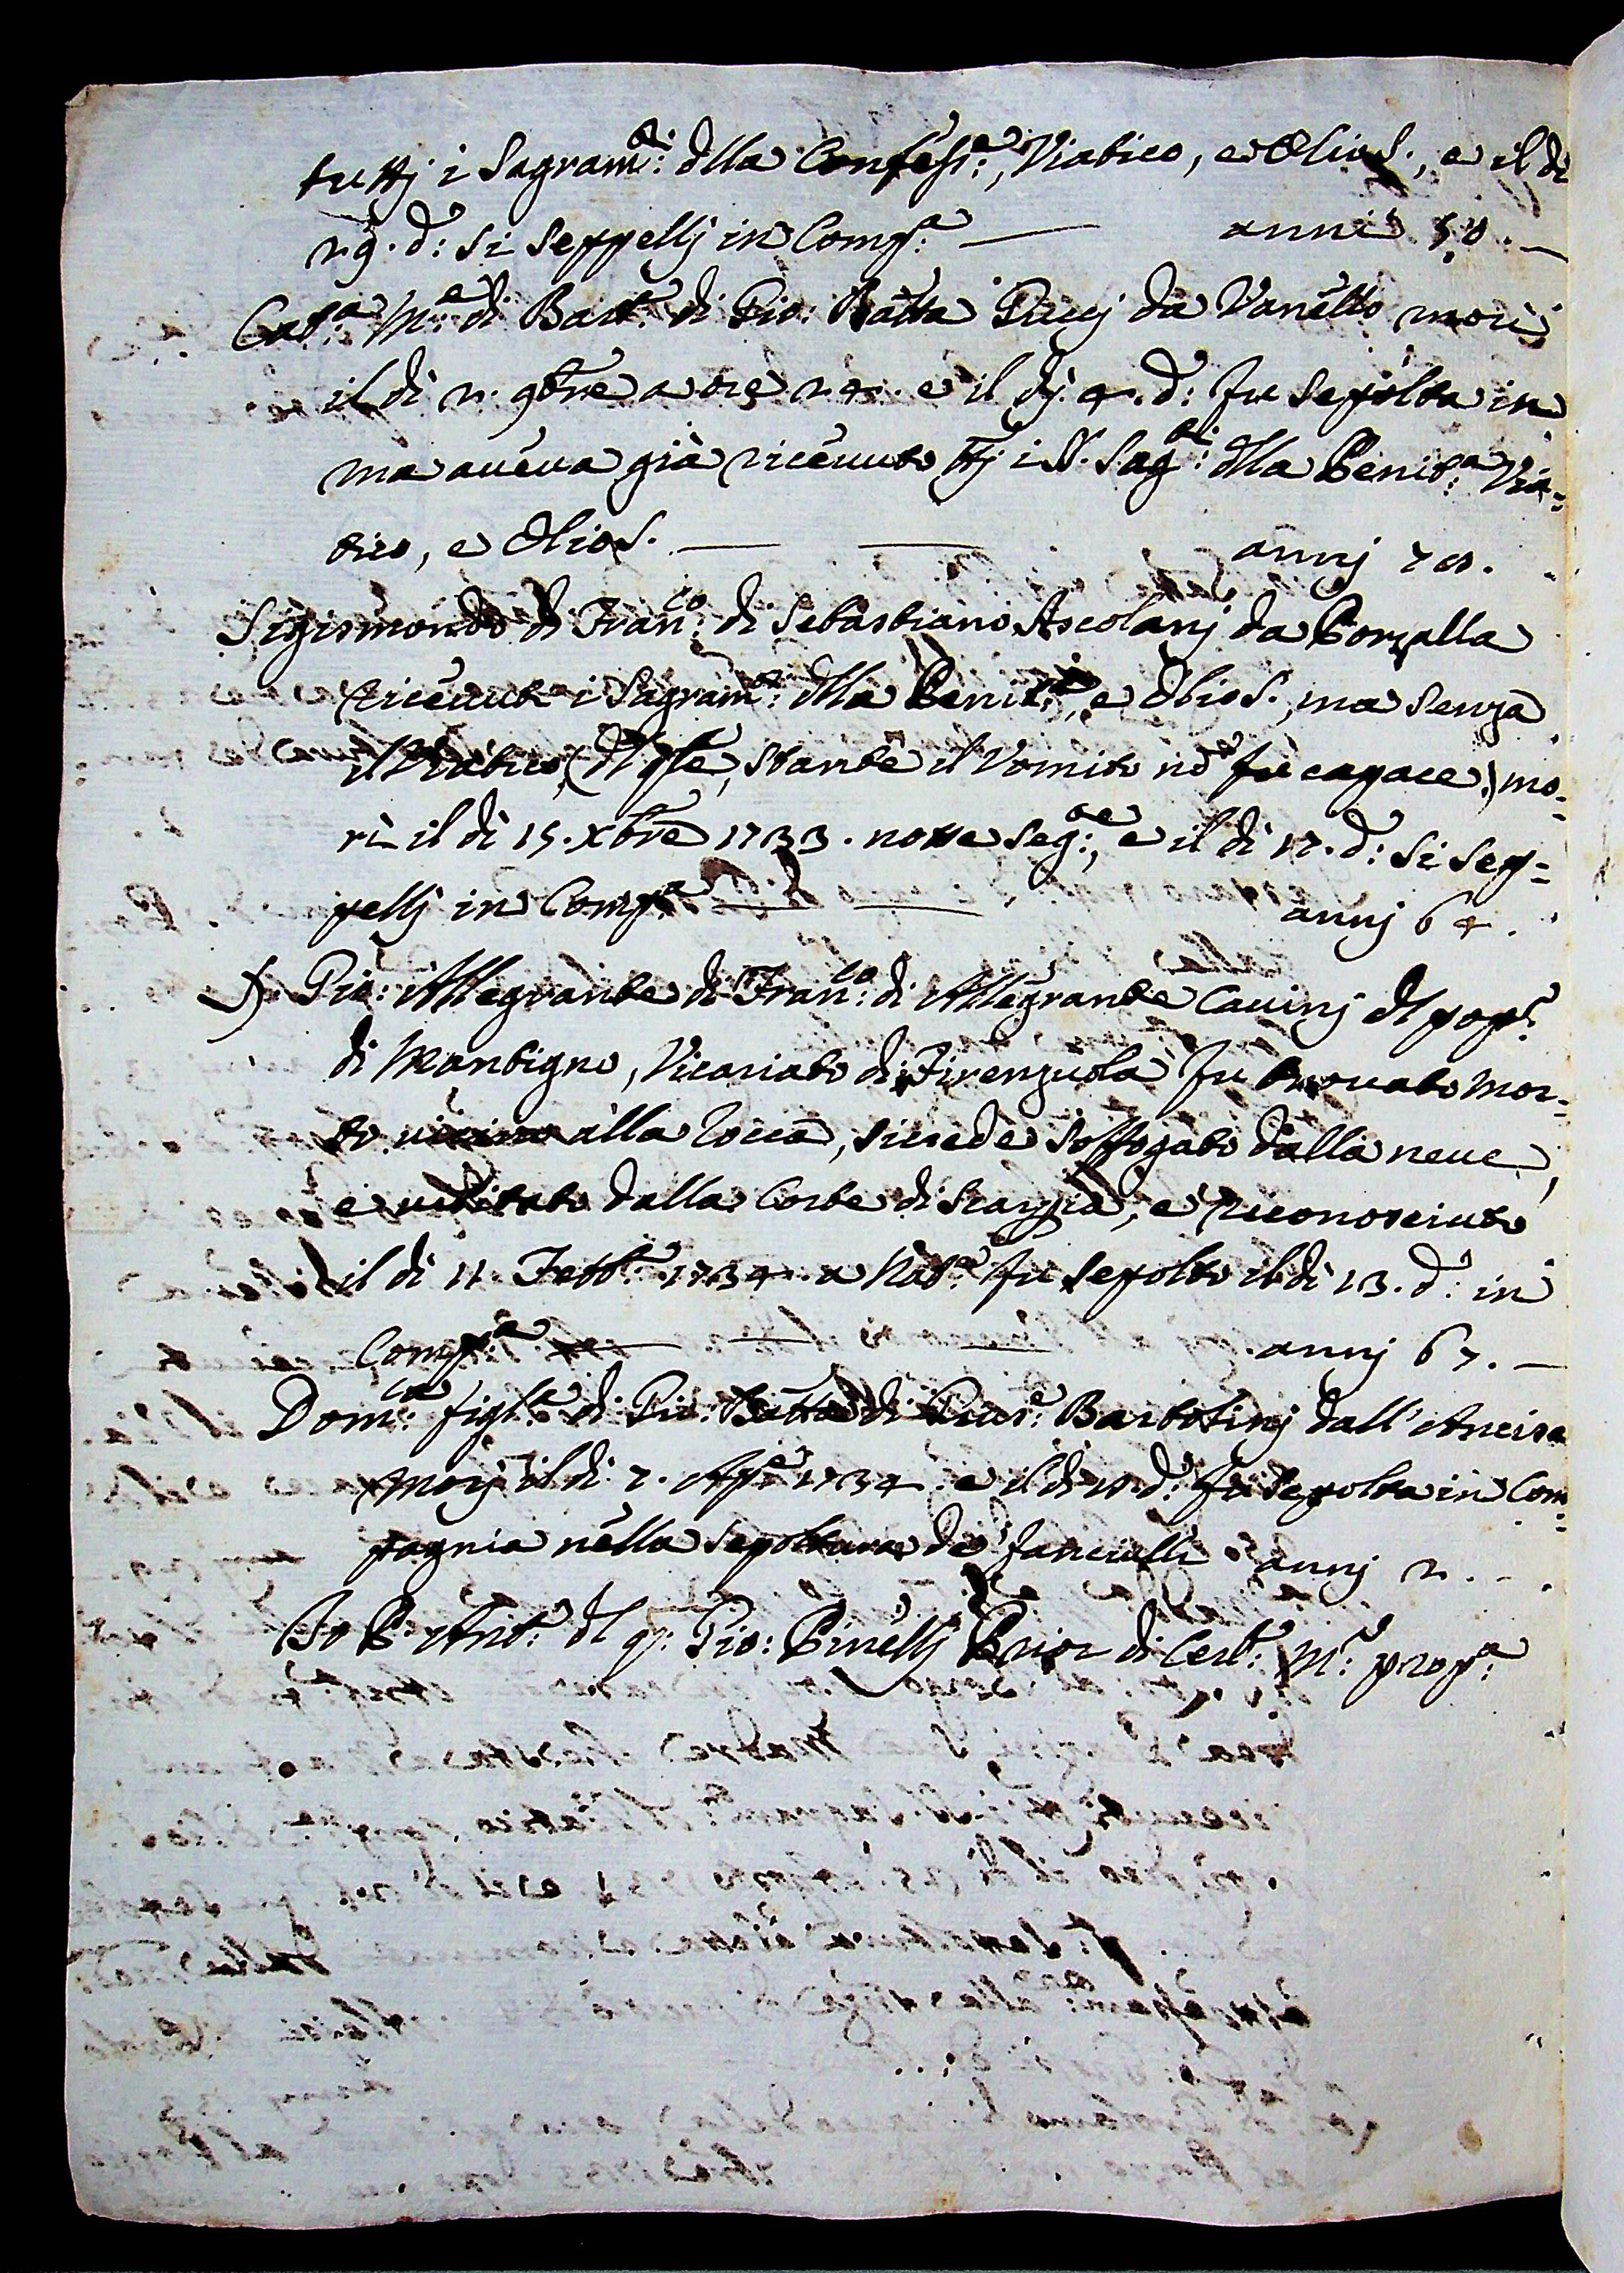 tuttj i Sagram.ti dlla Confess.e, Viatico, e Olio S., e il dì
29. d.o: si seppellj in Comp.a — anni 50. —
Cat.a M.e di Bart.o di Gio: Batta Puccj da Vanétto morì
il dì 2. 9bre a ore 24. e il dj. 4. d.o: fu sepólta in
ma auéua già riceuuto ttj i SS. Sag.ti dlla Penit.a Via=
tico, e Olio S. — — annj 70.
Sigismondo di Fran.co di Sebastiano Ascolanj da Cornalla
riceuut i Sagram.ti dlla Penit.a, e Olio S., ma senza
il Viatico, (dl qle, stante il Vomito nō fù capace) mo=
rì il dì 15. Xbre 1733. notte seg.te, e il dì 17. d.o: si sep=
pellj in Comp.a — — annj 64.
Gio: Allegrante di Fran.co di Allegrante Cauinj dl pop.o
di Mantigno, Vicariato di Firenzuola fu trouato mor=
to vicino alla Rocca, si crede soffogato dalla neue,
e uisitato dalla Corte di Scarpia, e riconosciuto
il dì 11. Febb.o 1734. a Nat.e fu sepolto il dì 13. d.o: in
Comp.a — — — annj 67. —
Dom.ca figl.a di Gio: Batta di Gius.e Bartolinj dall'Ancisa
morj il dì 7. Ap.e 1734. e il dì 10 d.o: fu sepolta in Com=
pagnia nélla sepoltura de' fanciulli annj 2. —
Io P. Ant.o dl q. Gio: Pinéllj Prior di Cert.o M.o prop.a